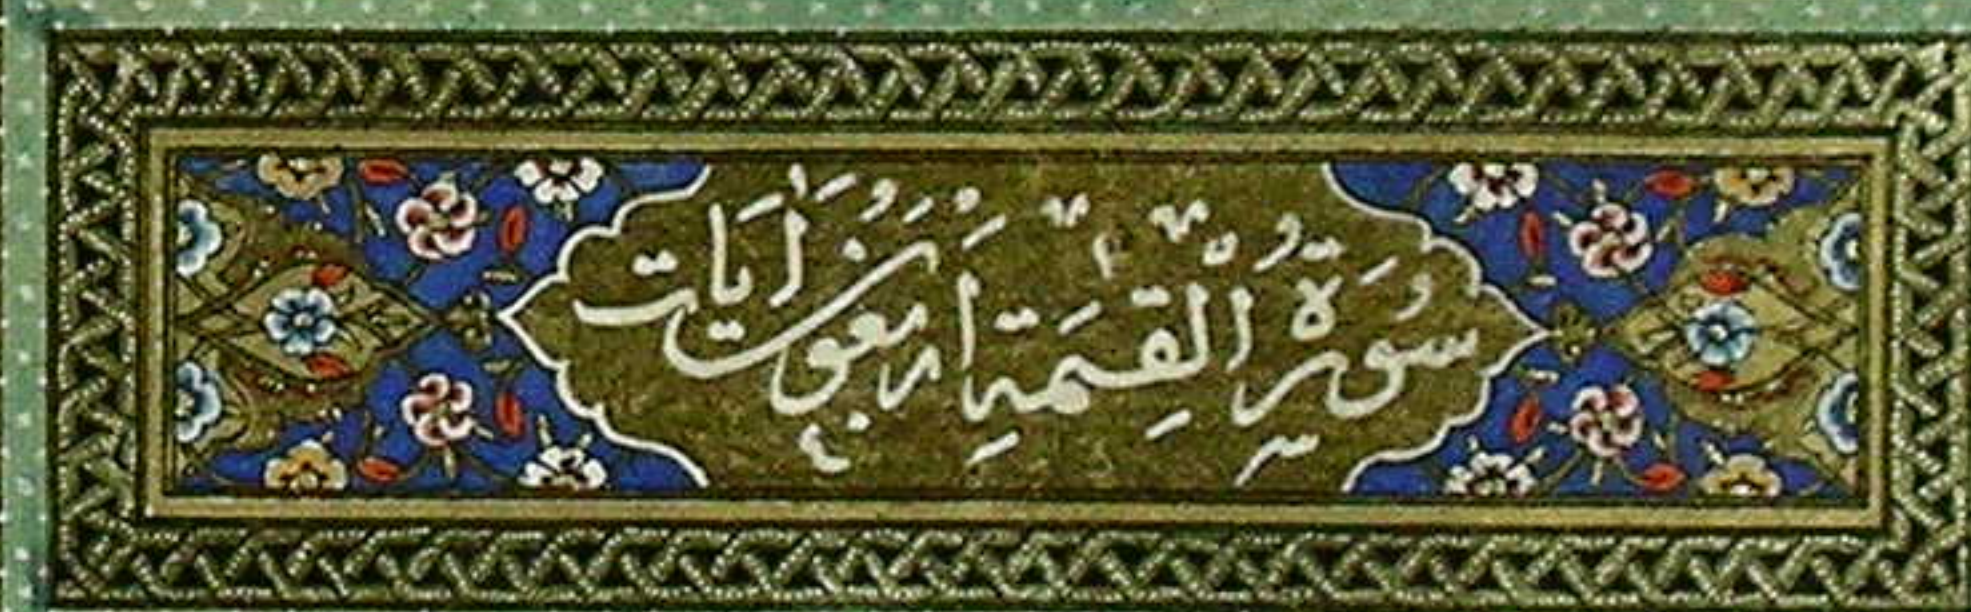 سُورَةُ الْقِيمَةِ أَرْبَعُونَ آيَات